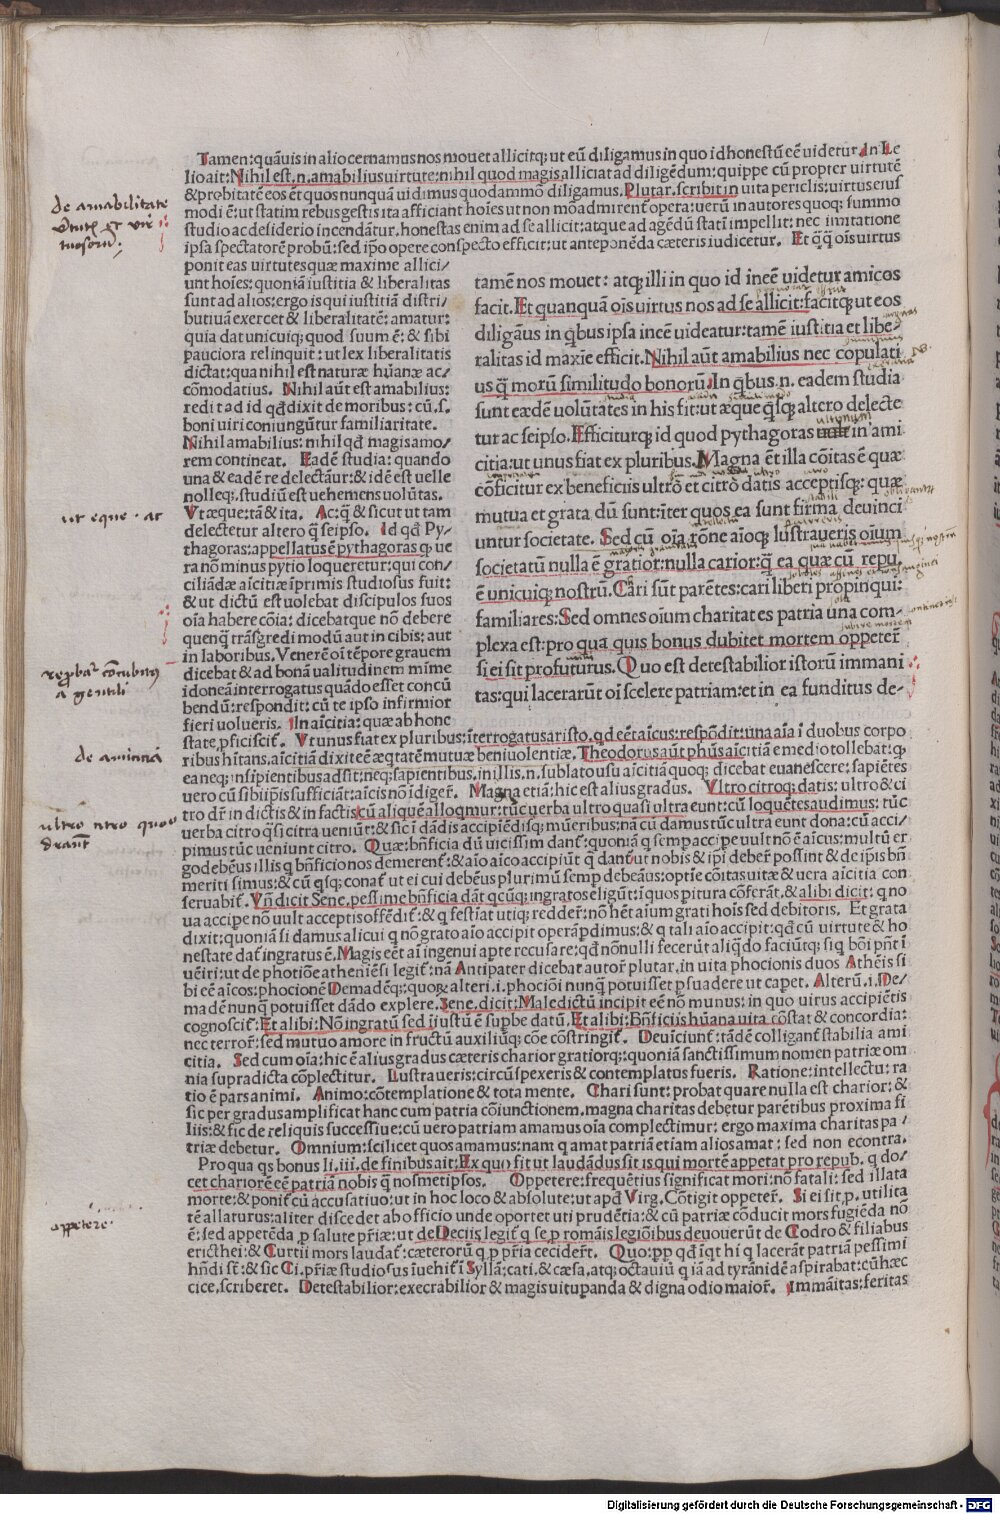 Tamen: quāuis in alio cernamus nos mouet allicitq; ut eū diligamus in quo id honestū eē uidetur. In Le
lio ait: Nihil est .n. amabilius uirtute: nihil quod magis alliciat ad diligēdum: quippe cū propter uirtutē
& probitatē eos ēt quos nunquā uidimus quodammō diligamus. Plutar. scribit in uita periclis: uirtus eius
modi ē: ut statim rebus gestis ita afficiant hoīes ut non mō admirent̄ opera: uerū in autores quoq; summo
studio ac desiderio incendātur, honestas enim ad se allicit: atque ad agēdū statī impellit: nec imitatione
ipsa spectatorē probū: sed ip̄o opere conspecto efficit: ut anteponēda cæteris iudicetur. Et q̄q̄ oīs uirtus
de amabilitate
ponit eas uirtutes quæ maxime allici/
unt hoīes: quoniā iustitia & liberalitas
sunt ad alios: ergo is qui iustitiā distri/
butiuā exercet & liberalitatē: amatur:
quia dat unicuiq; quod suum ē: & sibi
pauciora relinquit: ut lex liberalitatis
dictat: qua nihil est naturæ hūanæ ac/
cōmodatius. Nihil aūt est amabilius:
redit ad id qd̄ dixit de moribus: cū .s.
boni uiri coniungūtur familiaritate.
Nihil amabilius: nihil qd̄ magis amo/
rem contineat. Eadē studia: quando
una & eadē re delectāur: & idē est uelle
nolleq; studiū est uehemens uolūtas.
Vt æque: tā & ita. Ac: q̄ & sicut ut tam
delectetur altero q̄ seipso. Id qd̄ Py/
thagoras: appellatus ē pythagoras q; ue
ra nō minus pytio loqueretur: qui con/
ciliādæ aīcitiæ īprimis studiosus fuit:
& ut dictū est uolebat discipulos suos
oīa habere cōia: dicebatque nō debere
quenq̄ trāsgredi modū aut in cibis: aut
in laboribus. Venerē oī tēpore grauem
dicebat & ad bonā ualitudinem mīme
idoneā interrogatus quādo esset concū
bendū: respondit: cū te ipso infirmior
fieri uolueris. In aīcitia: quæ ab hone
ut eque . ac
tamē nos mouet: atq; illi in quo id ineē uidetur amicos
facit. Et quanquā oīs uirtus nos ad se allicit: facitq; ut eos
diligāus in q̄bus ipsa ineē uideatur: tamē iustitia et libe/
ralitas id maxīe efficit. Nihil aūt amabilius nec copulati
us q̄ morū similitudo bonorū. In q̄bus .n. eadem studia
sunt eædē uolūtates in his fit: ut æque q̄sq; altero delecte
tur ac seipso. Efficiturq; id quod pythagoras uult in ami
citia: ut unus fiat ex pluribus. Magna ēt illa cōitas ē quæ
cōficitur ex beneficiis ultro et citro datis acceptisq; quæ
mutua et grata dū sunt: iter quos ea sunt firma deuinci
untur societate. Sed cū oīa rōne aīoq; lustraueris oīum
societatū nulla ē gratior: nulla carior: q̄ ea quæ cū repu.
ē unicuiq; nostrū. Cari sūt parētes: cari liberi propinqui:
familiares: Sed omnes oīum charitates patria una com-
plexa est: pro qua quis bonus dubitet mortem oppeterē
si ei sit profuturus. Quo est detestabilior istorū immani
tas: qui lacerarūt oī scelere patriam: et in ea funditus de-
state pficiscit̄. Vt unus fiat ex pluribus: īterrogatus aristo. qd eēt aīcus: respōdit: una aīa ī duobus corpo
ribus hītans, aīcitiā dixit eē æq̄tatē mutuæ beniuolentiæ. Theodorus aūt ph̄us aīcitiā e medio tollebat: q;
ea neq; insipientibus adsit: neq; sapientibus, in illis .n. sublato usu aīcitiā quoq; dicebat euanescere: sapiētes
uero cū sibiip̄is sufficiāt: aīcis nō idiger̄. Magna etiā: hic est alius gradus. Vltro citroq; datis: ultro & ci
tro dr̄ in dictis & in factis cū aliquē alloqmur: tūc uerba ultro quasi ultra eunt: cū loquētes audimus: tūc
uerba citro q̄si citra ueniūt: & sic ī dādis accipiēdisq; mūeribus: nā cū damus tūc ultra eunt dona: cū acci/
pimus tūc ueniunt citro. Quæ: bn̄ficia dū uicissim dant̄: quoniā q semp accipe uult nō ē aīcus: multū er
go debēus illis q bn̄ficio nos demerent̄: & aīo aīco accipiūt q̄ dant̄ ut nobis & ip̄i deber̄ possint & de ip̄is bn̄
meriti simus: & cū q̄sq; conat̄ ut ei cui debēus plurimū semp debeāus: optīe cōitas uitæ & uera aīcitia con
seruabit̄. Vn̄ dicit Sene. pessime bn̄ficia dāt q̄cūq; ingratos eligūt: ī quos pitura cōferāt, & alibi dicit: q no
ua accipe nō uult acceptis offēdit̄: & q festīat utiq; redder̄: nō hēt aīum grati hoīs sed debitoris. Et grata
dixit: quoniā si damus alicui q nō grato aīo accipit operā pdimus: & q tali aīo accipit: qd̄ cū uirtute & ho
nestate dat̄ ingratus ē. Magis eēt aī ingenui apte recusare: qd̄ nōnulli fecerūt aliq̄do faciūtq; siq bōi pn̄t ī
uēiri: ut de photiōe atheniēsi legit̄: nā Antipater dicebat autor̄ plutar. in uita phocionis duos Athēis si
bi eē aīcos: phocionē Demadēq;: quorꝝ alteri .i. phociōi nunq̄ potuisset psuadere ut capet. Alterū .i. De/
madē nunq̄ potuisset dādo explere. Sene. dicit: Maledictū incipit eē nō munus: in quo uirus accipiētis
cognoscit̄: Et alibi: Nō ingratū sed iiustū ē supbe datū. Et alibi: Bn̄ficiis hūana uita cōstat & concordia:
nec terror̄: sed mutuo amore in fructū auxiliūq; cōe cōstringit̄. Deuiciunt̄: tādē colligant̄ stabilia ami
citia. Sed cum oīa: hic ē alius gradus cæteris charior gratiorq;: quoniā sanctissimum nomen patriæ om
nia supradicta cōplectitur. Lustraueris: circūspexeris & contemplatus fueris. Ratione: intellectu: ra
tio ē pars animi. Animo: cōtemplatione & tota mente. Chari sunt: probat quare nulla est charior: &
sic per gradus amplificat hanc cum patria cōiunctionem. magna charitas debetur parētibus proxima fi
liis: & sic de reliquis successiue: cū uero patriam amamus oīa complectimur: ergo maxima charitas pa/
triæ debetur. Omnium: scilicet quos amamus: nam q amat patriā etiam alios amat: sed non econtra.
Pro qua qs bonus li. iii. de finibus ait: Ex quo fit ut laudādus sit is qui mortē appetat pro repub. q do/
cet chariorē eē patriā nobis q̄ nosmetipsos. Oppetere: frequētius significat mori: nō fatali: sed illata
morte: & ponit̄ cū accusatiuo: ut in hoc loco & absolute: ut apd̄ Virg. Cōtigit oppeter̄. Si ei sit .p. utilita
tē allaturus: aliter discedet ab officio unde oportet uti prudētia: & cū patriæ cōducit mors fugiēda nō
ē: sed appetēda p salute pr̄iæ: ut de Deciis legit̄ q se p romāis legiōibus deuouerūt de Codro & filiabus
ericthei: & Curtii mors laudat̄: cæterorū q p pr̄ia ceciderr̄. Quo: pp qd̄ īqt hi q lacerāt patriā pessimi
hn̄di st̄: & sic Ci. pr̄iæ studiosus īuehit̄ ī Syllā: cati. & cæsa. atq; octauiū q iā ad tyrānidē aspirabat: eū hæc
cice. scriberet. Detestabilior: execrabilior & magis uitupanda & digna odio maior̄. Immāitas: feritas
de amicitiā
ultro citro quo
appetere
Digitalisierung gefördert durch die Deutsche Forschungsgemeinschaft - DFG